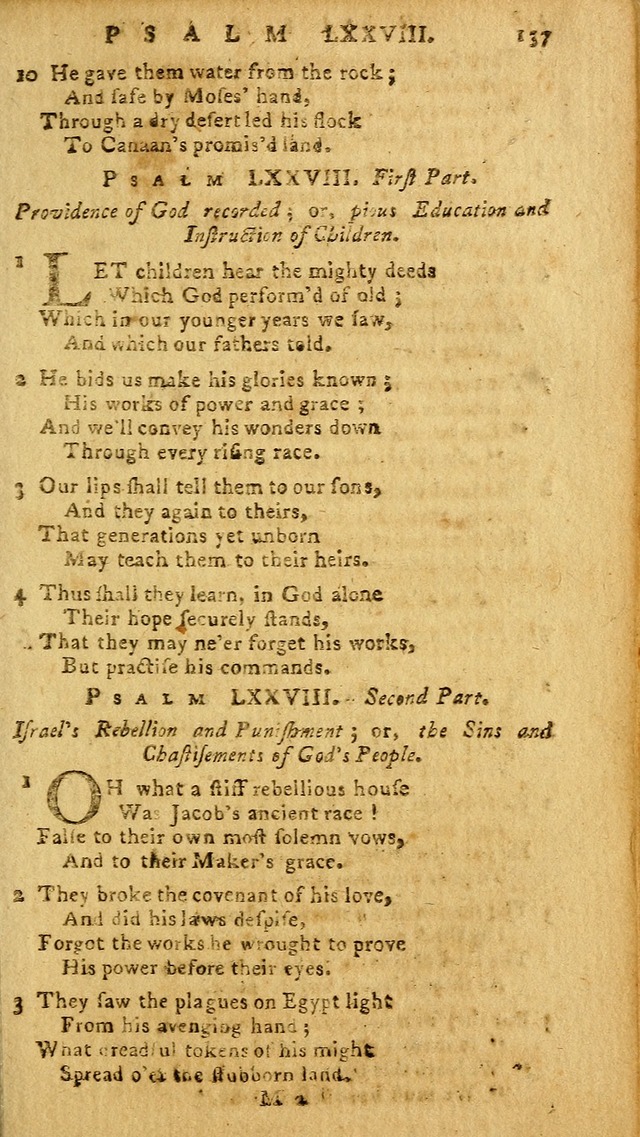 PSALM LXXVIII. 137
10 He gave them water from the rock;
And ſafe by Moſes' hand,
Through a dry deſert led his flock
To Canaan's promis'd land.
PSALM LXXVIII. Firſt Part.
Providence of God recorded; or, pious Education and
Inſtruction of Children.
1 LET children hear the mighty deeds
Which God perform'd of old;
Which in our younger years we ſaw,
And which our fathers told.
2 He bids us make his glories known;
His works of power and grace;
And we'll convey his wonders down
Through every riſing race.
3 Our lips ſhall tell them to our ſons,
And they again to theirs,
That generations yet unborn
May teach them to their heirs.
4 Thus ſhall they learn, in God alone
Their hope ſecurely ſtands,
That they may ne'er forget his works,
But practiſe his commands.
PSALM LXXVIII. Second Part.
Iſrael's Rebellion and Puniſhment; or, the Sins and
Chaſtiſements of God's People.
1 OH what a ſtiff rebellious houſe
Was Jacob's ancient race!
Falſe to their own moſt ſolemn vows,
And to their Maker's grace.
2 They broke the covenant of his love,
And did his laws deſpiſe,
Forgot the works he wrought to prove
His power before their eyes.
3 They ſaw the plagues on Egypt light
From his avenging hand;
What dreadful tokens of his might
Spread o'er the ſtubborn land.
M 2